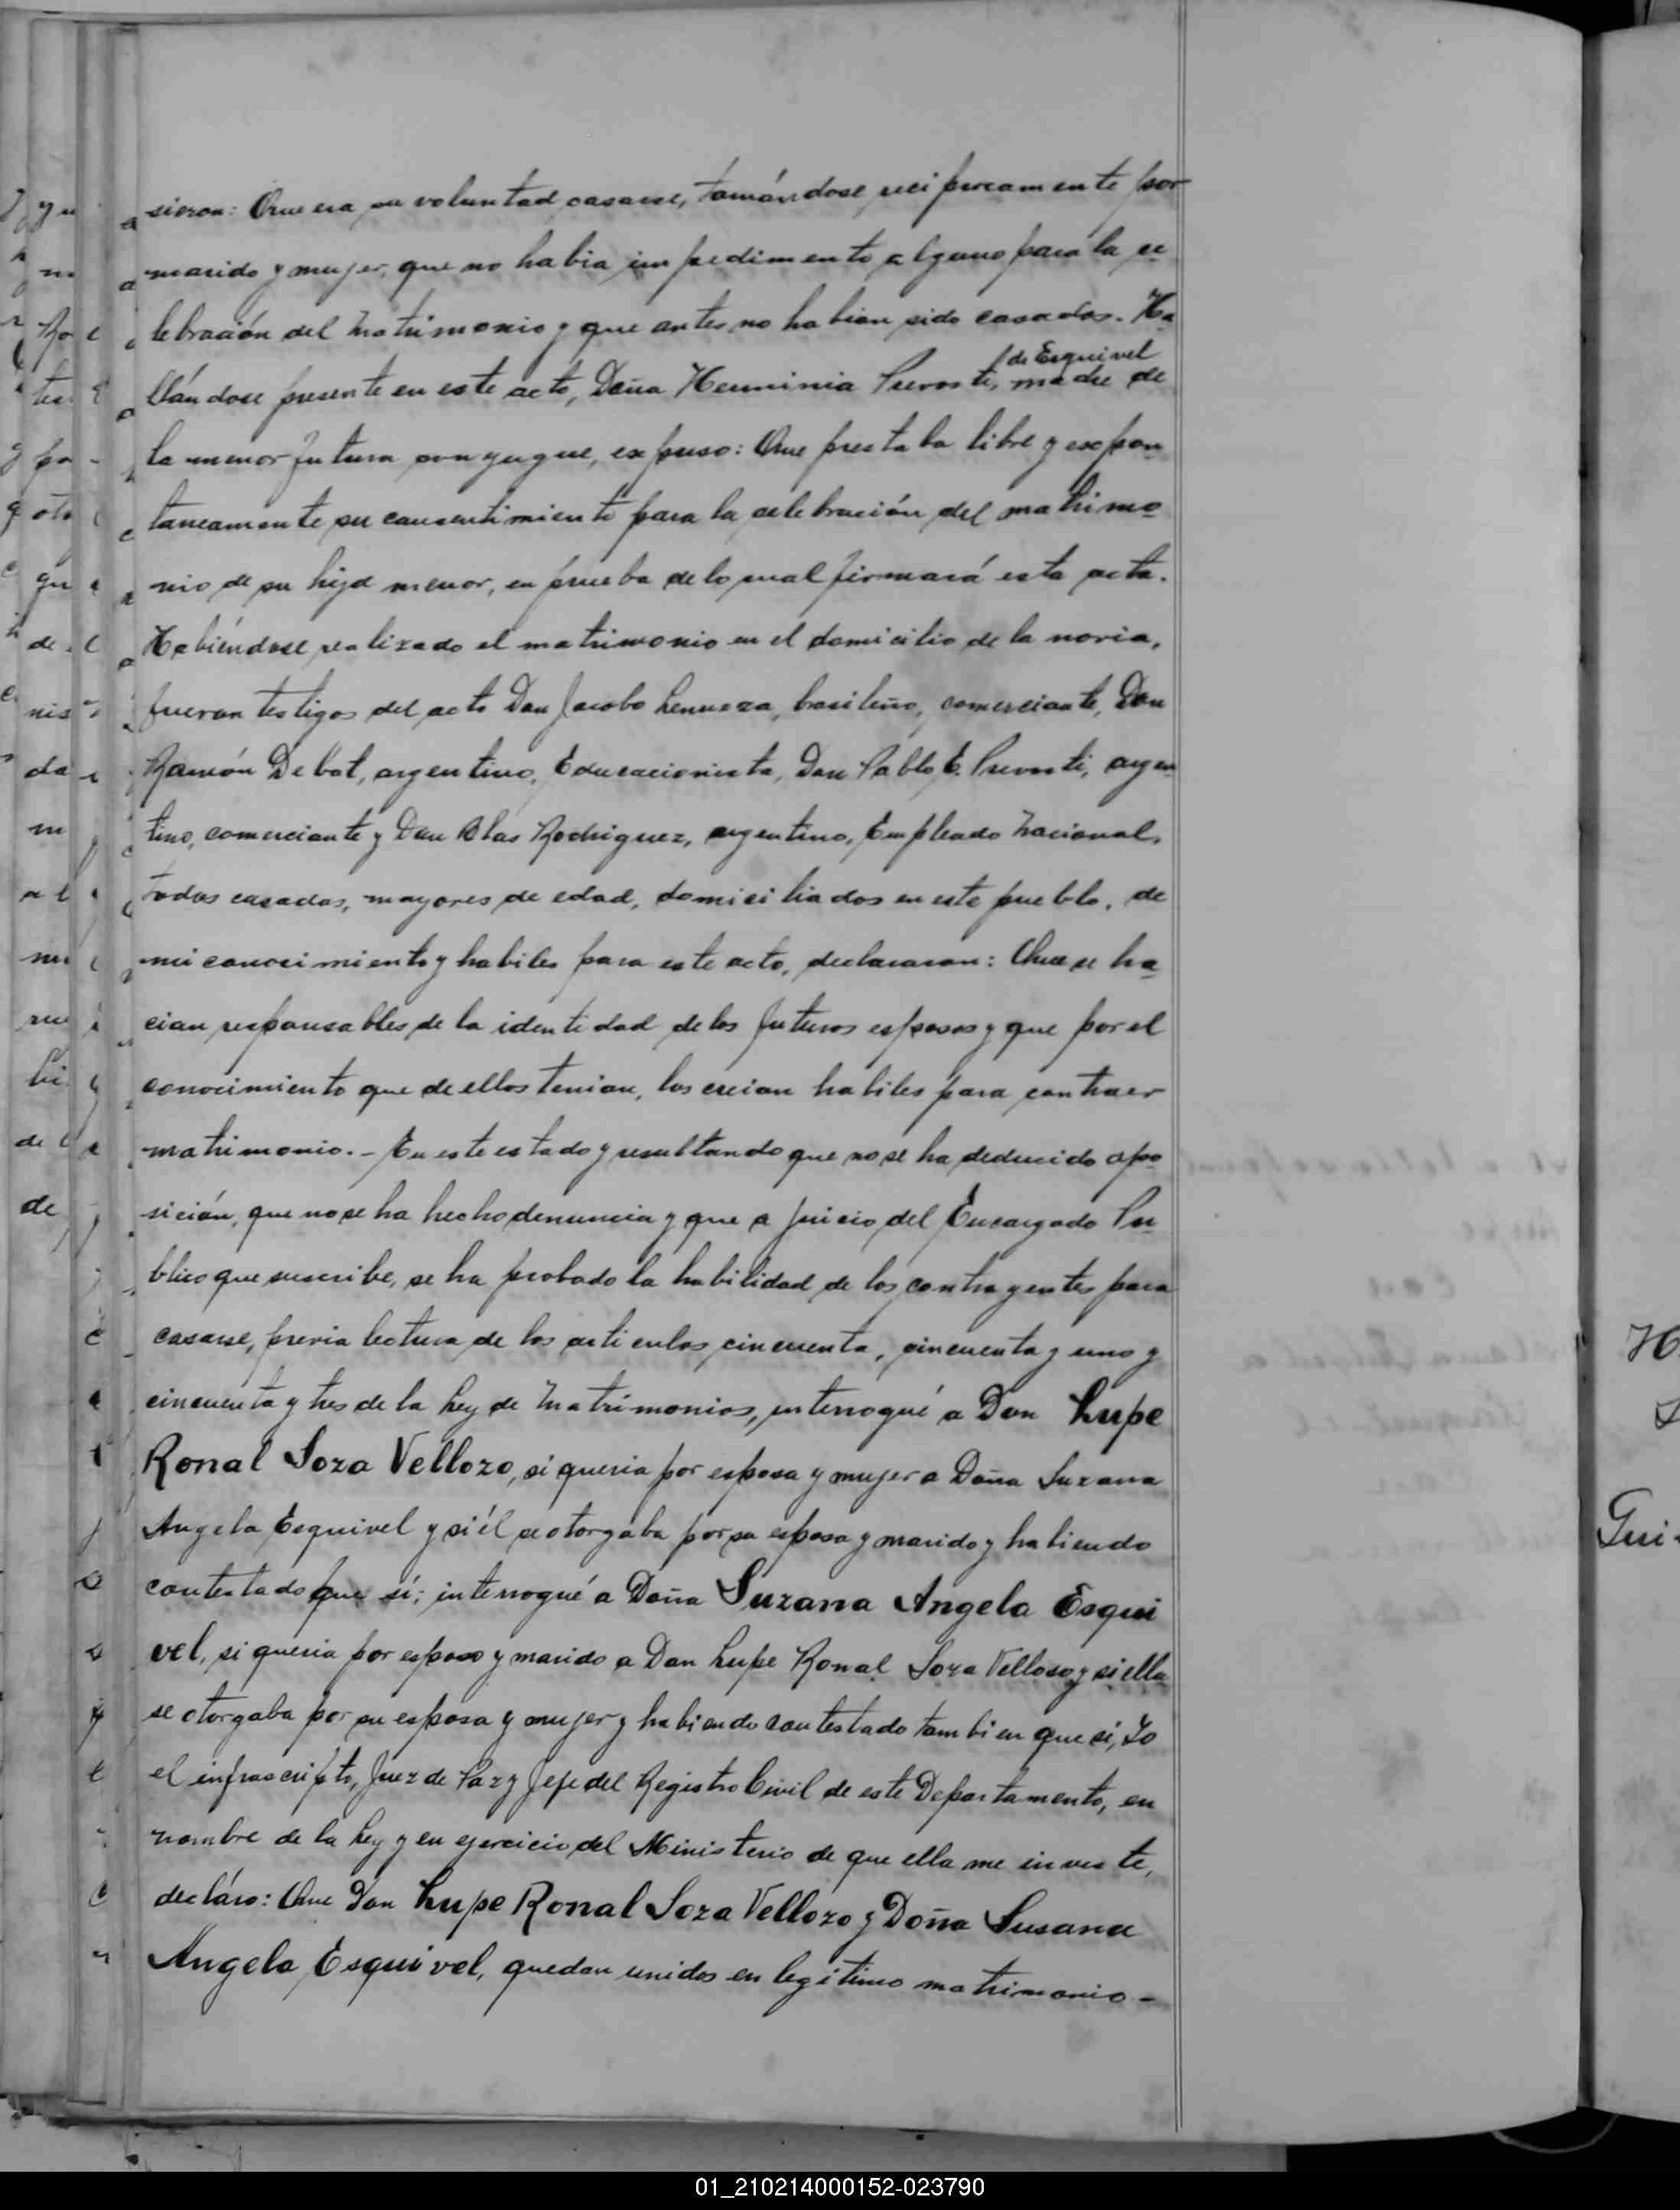 sieron: Que era su voluntad casarse, tomándose reciprocamente por
marido y mujer, que no habia impedimento alguno para la ce
lebración del Matrimonio y que antes no habian sido casados. Ha
de Esquivel
llándose presente en este acto, Doña Herminia Prevosti, madre de
la menor futura conyugue, expuso: Que prestaba libre y expon
taneamente su consentimiento para la celebración del matrimo
nio de su hija menor, en prueba de lo cual firmará esta acta.
Habiéndose realizado el matrimonio en el domicilio de la novia,
fueron testigos del acto Don Jacobo brasileño, comerciante, Don
Ramón Debat, argentino, Educacionista, Don Pablo E. Prevosti, argen
tino, comerciante y Don Blas Rodriguez, argentino, Empleado Nacional,
todos casados, mayores de edad, domiciliados en este pueblo, de
mi conocimiento y habiles para este acto, declararon: Que se ha
cian responsables de la identidad de los futuros esposos y que por el
conocimiento que de ellos tenian, los creian habiles para contraer
matrimonio.- En este estado y resultando que no se ha deducido opo
sición, que no se ha hecho denuncia y que a juicio del Encargado Pu
blico que suscribe, se ha probado la habilidad de los contrayentes para
casarse, previa lectura de los articulos cincuenta, cincuenta y uno y
cincuenta y tres de la Ley de Matrimonios, interrogué a Don Lupe
Ronal Soza Vellozo, si queria por esposa y mujer a Doña Suzana
Angela Esquivel y si él se otorgaba por su esposo y marido y habiendo
contestado que sí; interrogué a Doña Suzana Angela Esqui
vel, si queria por esposo y marido a Don Lupe Ronal Soza Velloso y si ella
se otorgaba por su esposa y mujer y habiendo contestado tambien que si, Yo
el infrascripto, Juez de Paz y Jefe del Registro Civil de este Departamento, en
nombre de la Ley y en ejercicio del Ministerio de que ella me investe,
decláro: Que Don Lupe Ronal Soza Vellozo y Doña Susana
Angela Esquivel, quedan unidos en legitimo matrimonio -
01_210214000152-023790